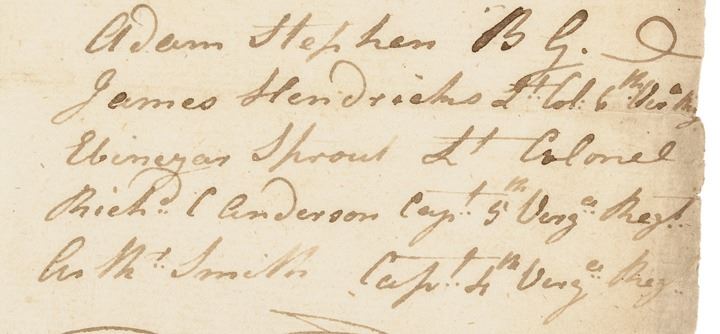 Adam Stephen B G.
James Hendricks Lt Col: 6th Virga Reg
Ebinezar Sprout Lt Colonel
Richd. C Anderson Capt 5th Virga Regt.
Arthr. Smith Capt 4th Virga Reg